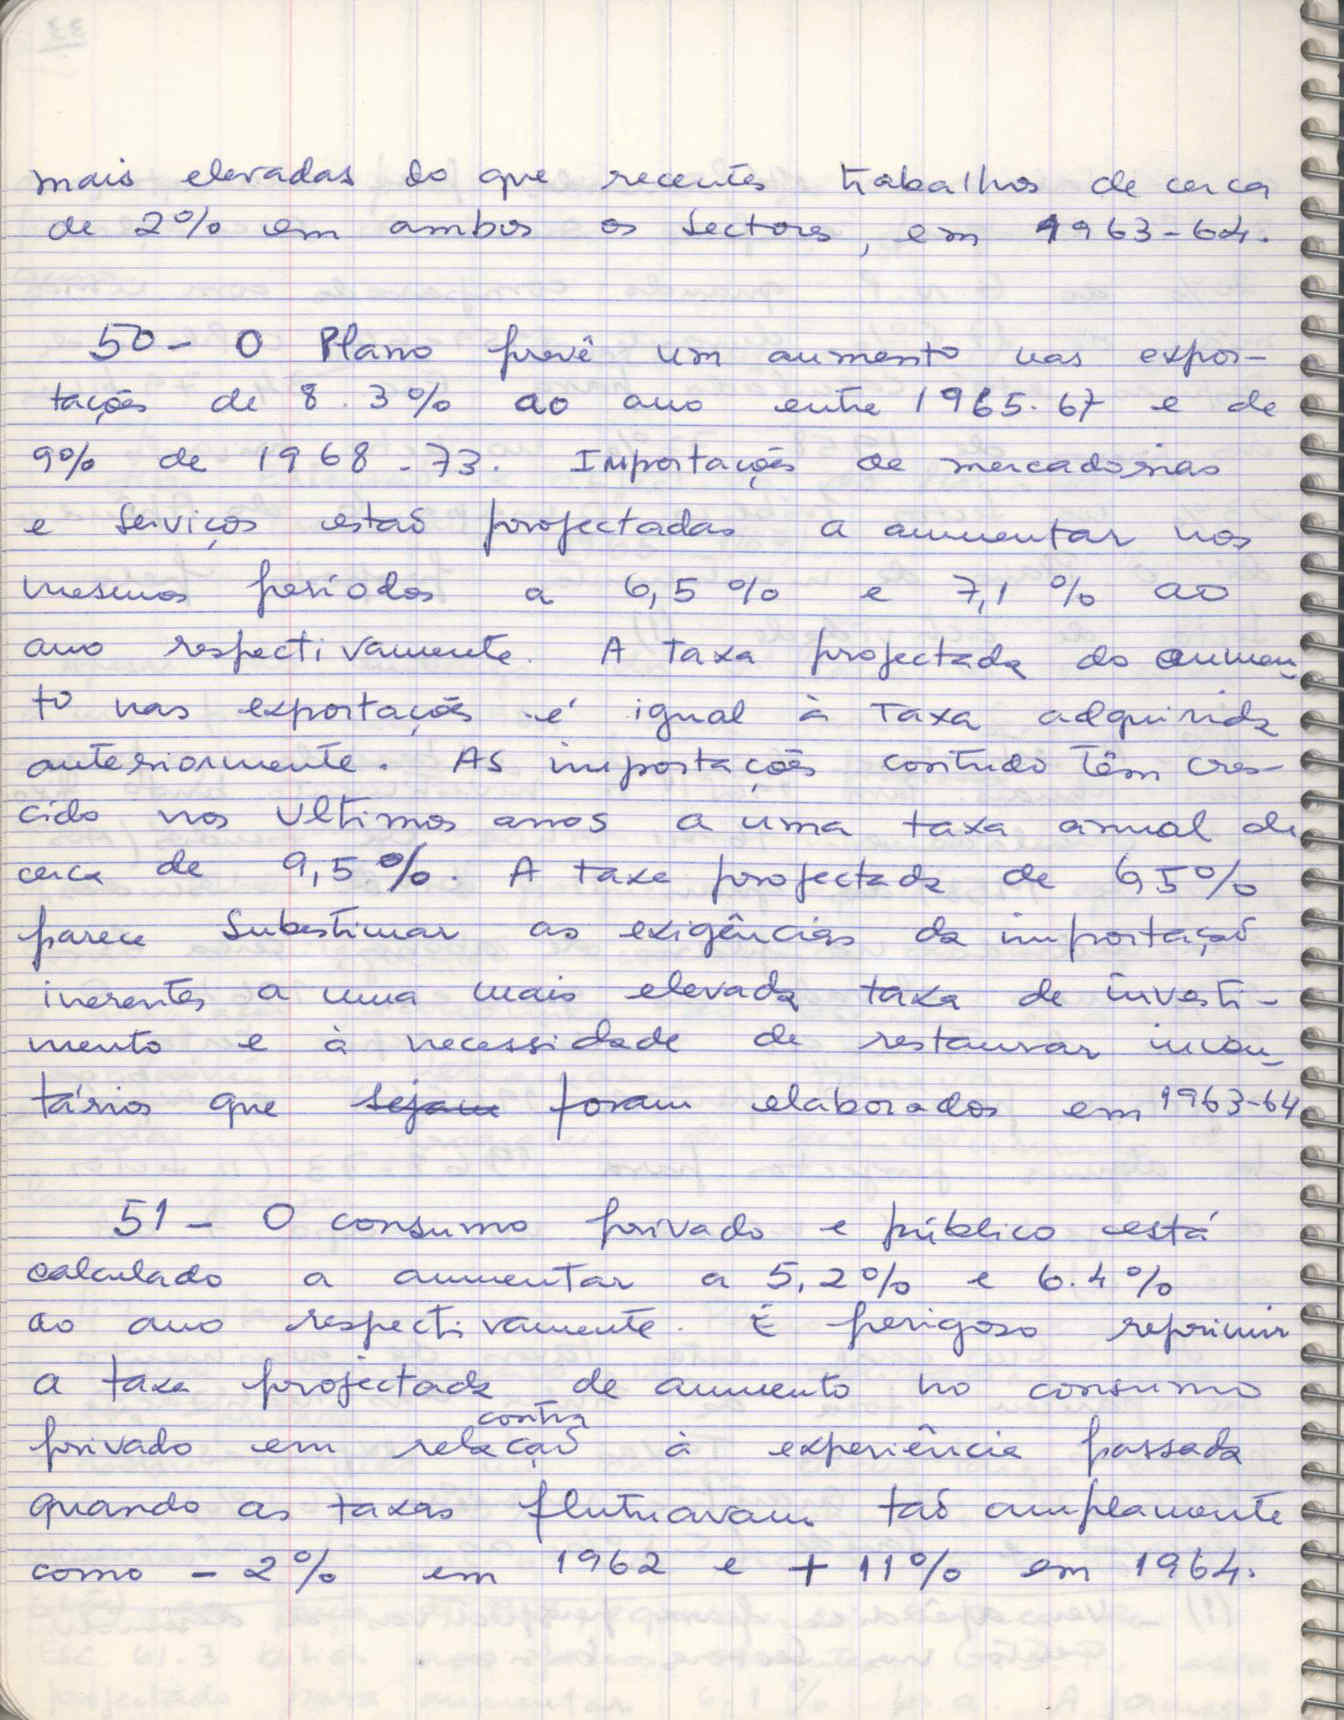 mais elevadas do que recentes trabalhos de cerca
de 2% em ambos os sectores, em 1963-64.
50- O Plano prevê um aumento nas expor-
tações de 8.3% ao ano entre 1965-67 e de
9% de 1968-73. Importações de mercadorias
e serviços estaõ projectadas a aumentar nos
mesmos períodos a 6,5% e 7,1% ao
ano respectivamente. A taxa projectada do aumen-
to nas exportações é igual à taxa adquirida
anteriormente. As importações contudo têm cres-
cido nos ultimos anos a uma taxa anual de
cerca de 9,5%. A taxa projectada de 6,5%
parece subestimar as exigências da importaçaõ
inerentes a uma mais elevada taxa de investi-
mento e à necessidade de restaurar inven-
tários que sejam foram elaborados em 1963-64
51- O consumo privado e público está
calculado a aumentar a 5,2% e 6.4%
ao ano respectivamente. É perigoso reprimir
a taxa projectada de aumento no consumo
contra
privado em relaçaõ à experiência passada
quando as taxas flutuavam taõ amplamente
como -2% em 1962 e +11% em 1964.